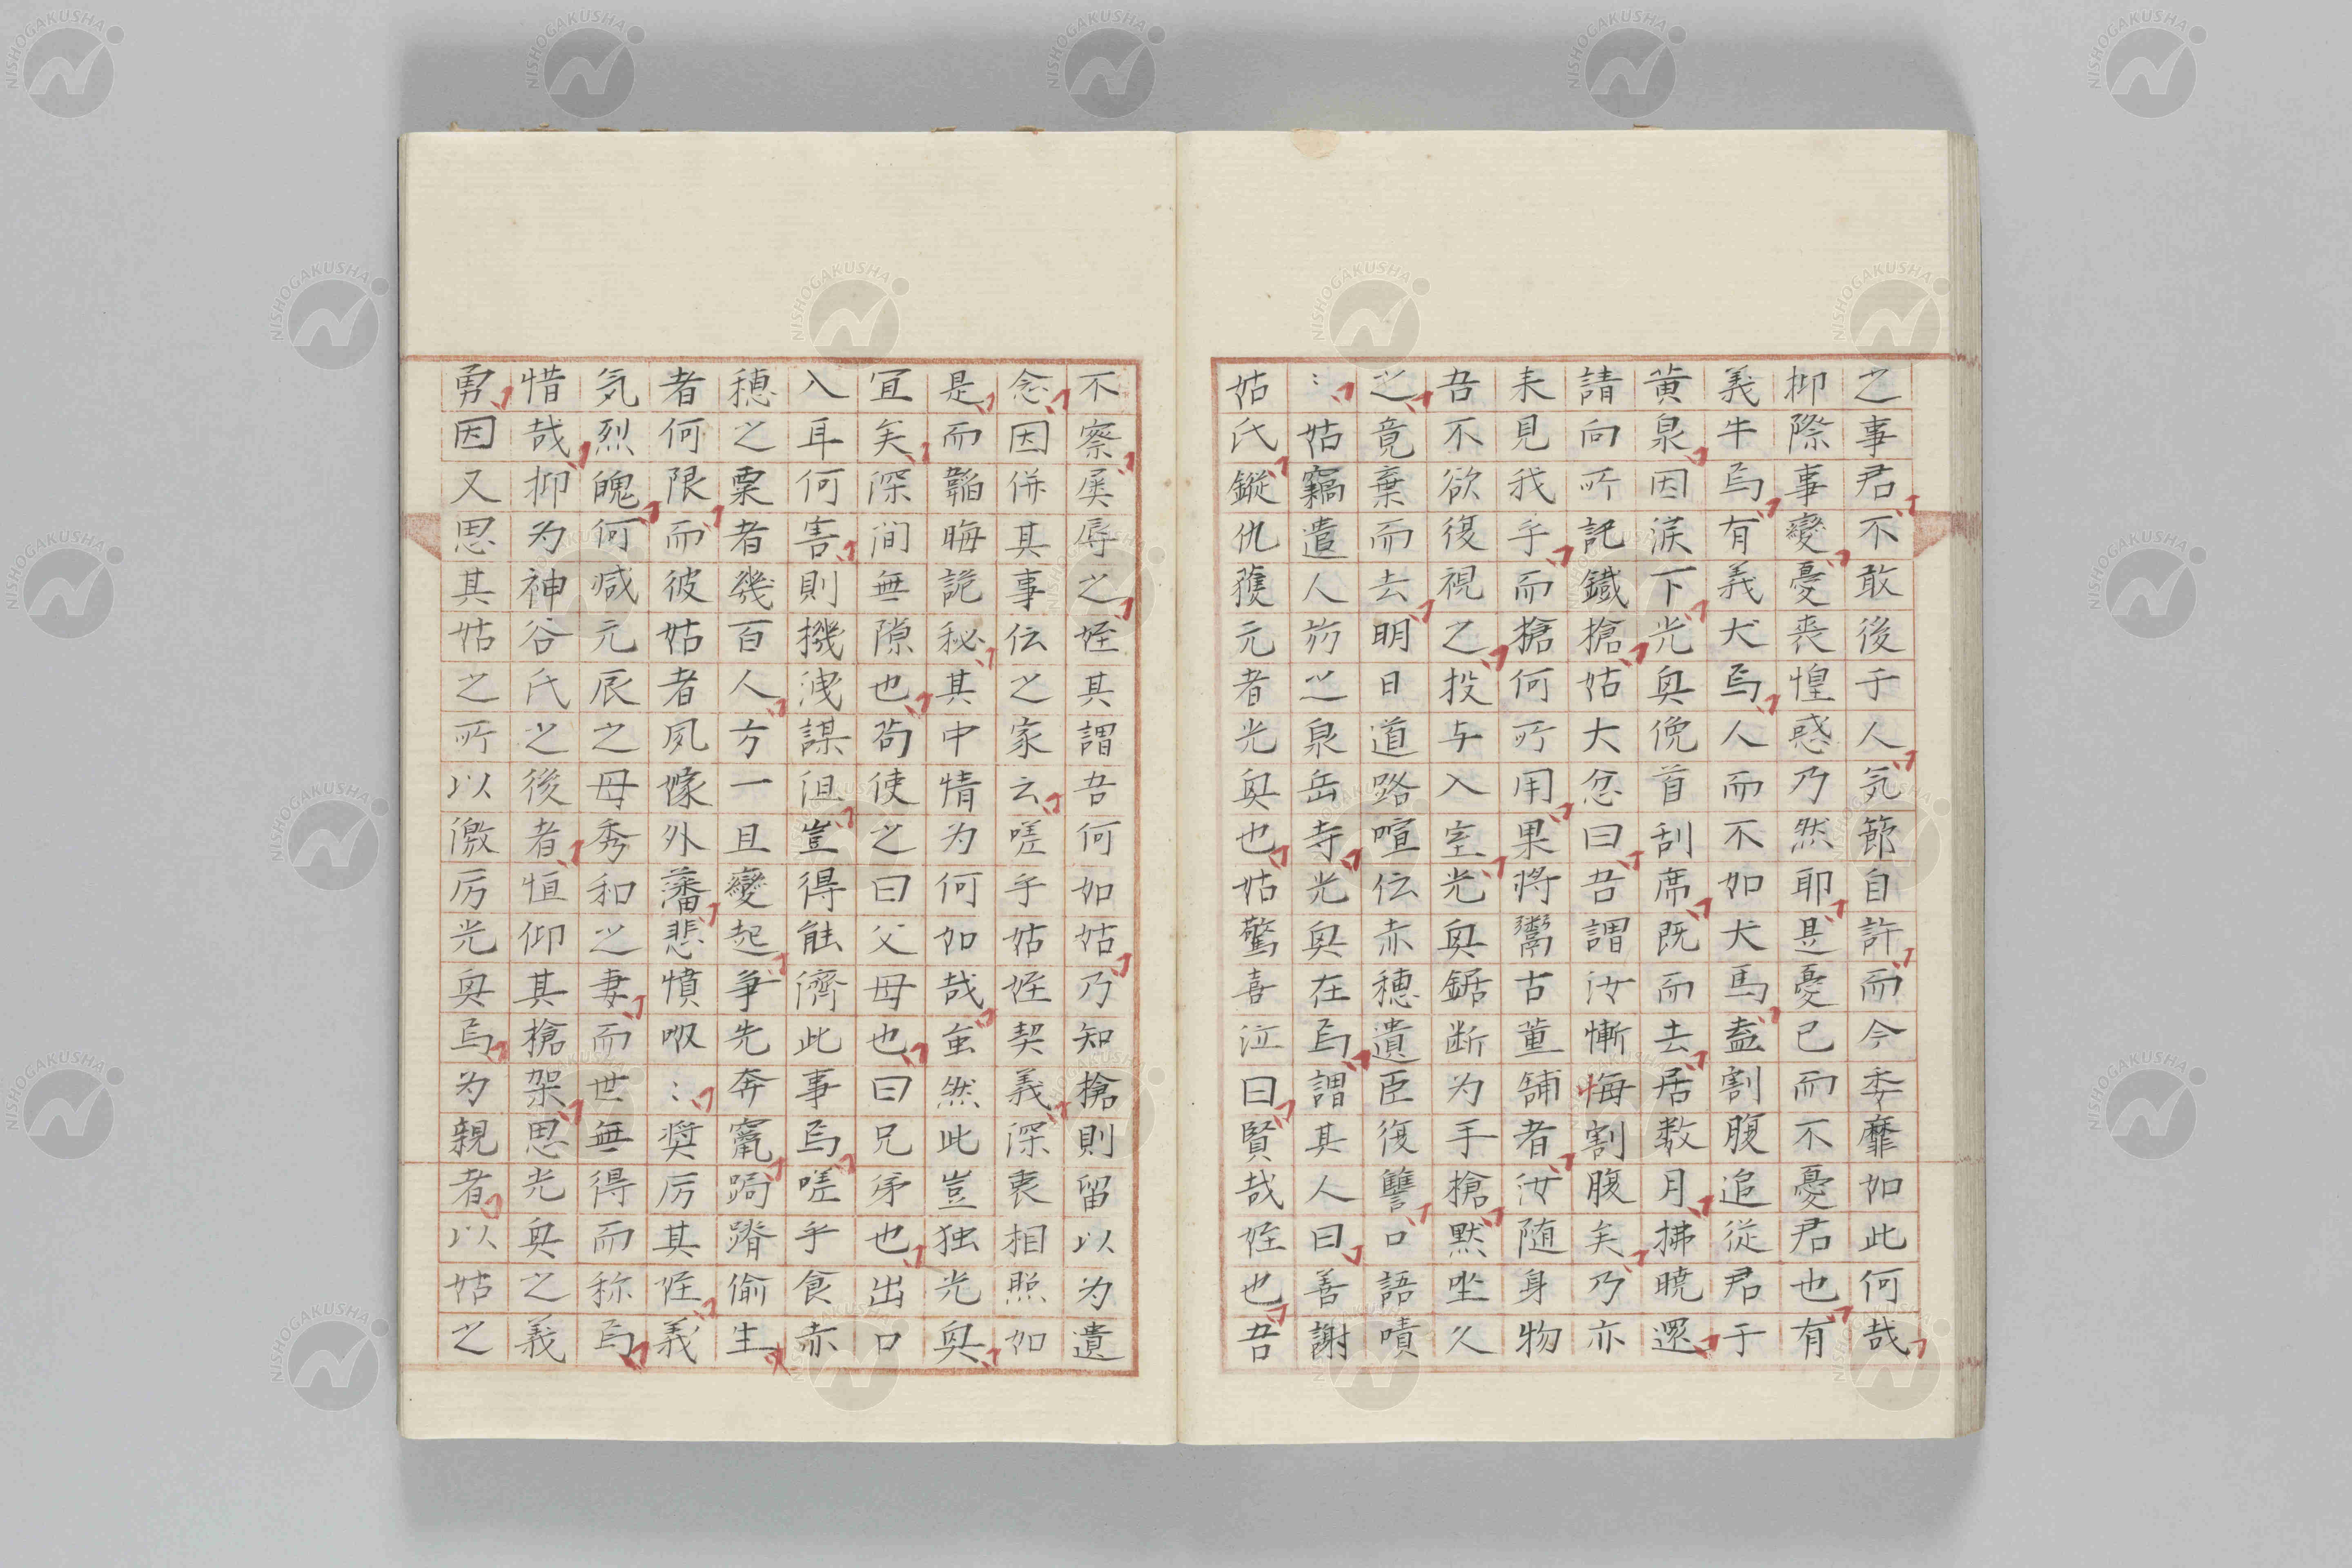 之事君不敢後于人気節自許而今委靡如此何哉
抑際事變憂喪惶惑乃然耶是憂已而不憂君也有
義牛焉有義犬焉人而不如犬馬盍割腹追從君于
黄泉因涙下光奥俛首刮席既而去居数月拂暁還
請向所託鐵槍姑大忿曰吾謂汝慚悔割腹矣乃亦
未見我乎而槍何所用果将鬻古董舗者汝随身物
吾不欲復視之投与入室光奥鋸断为手槍黙坐久
之竟棄而去明日道路喧伝赤穂遺臣復讐口語嘖
〻姑竊遣人訪之泉岳寺光奥在焉謂其人曰善謝
姑氏鏦仇獲元者光奥也姑驚喜泣曰賢哉姪也吾
不察屢辱之姪其謂吾何如姑乃知槍則留以为遺
念因併其事伝之家云嗟乎姑姪契義深衷相照如
是而韜晦詭秘其中情为何如哉虽然此豈独光奥
宜矣深間無隙也苟使之曰父母也曰兄弟也出口
入耳何害則機洩謀沮豈得能濟此事焉嗟乎食赤
穂之粟者幾百人方一旦變起争先奔竄跼蹐偷生
者何限而彼姑者夙嫁外藩悲憤呶〻奨厉其姪義
気烈魄何减元辰之母秀和之妻而世無得而称焉
惜哉抑为神谷氏之後者恒仰其槍架思光奥之義
勇因又思其姑之所以激厉光奥焉为親者以姑之
NISHOGAKUSHA